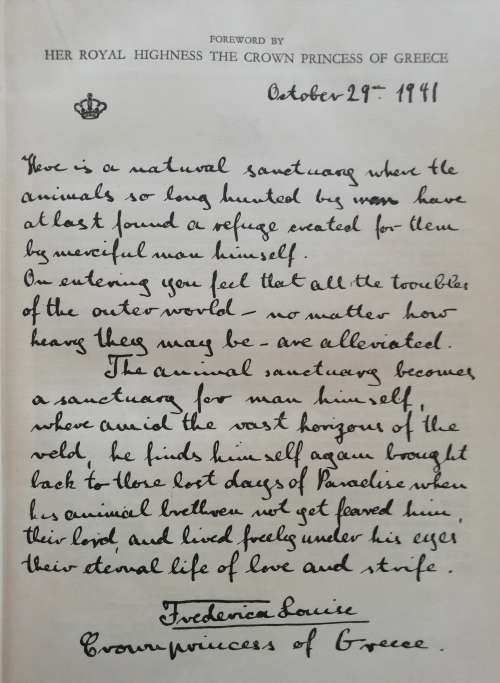 FOREWORD BY
HER ROYAL HIGHNESS THE CROWN PRINCESS OF GREECE
October 29th 1941
Here is a natural sanctuary where the
animals so long hunted by man have
at last found a refuge created for them
by merciful man himself.
On entering you feel that all the troubles
of the outer world – no matter how
heavy they may be – are alleviated.
The animal sanctuary becomes
a sanctuary for man himself,
where amid the vast horizons of the
veld, he finds himself again brought
back to those lost days of Paradise when
his animal brethren not yet feared him,
their lord, and lived freely under his eyes
their eternal life of love and strife.
Frederica Louise
Crownprincess of Greece.